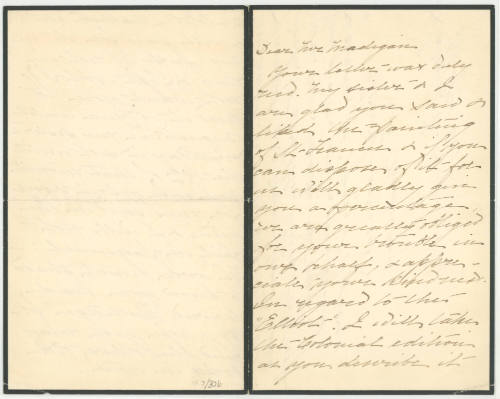 Dear Mr Madigan
Your letter was duly
recd. My sister & I
are glad you saw &
liked the painting
of St Francis & if you
can dispose of it for
us will gladly give
you a percentage
we are greatly oblig'd
for your trouble in
our behalf, & appre-
ciate your kindness.
In regard to the
"Elliot". I will take
the Colonial edition
as you describe it
7/306